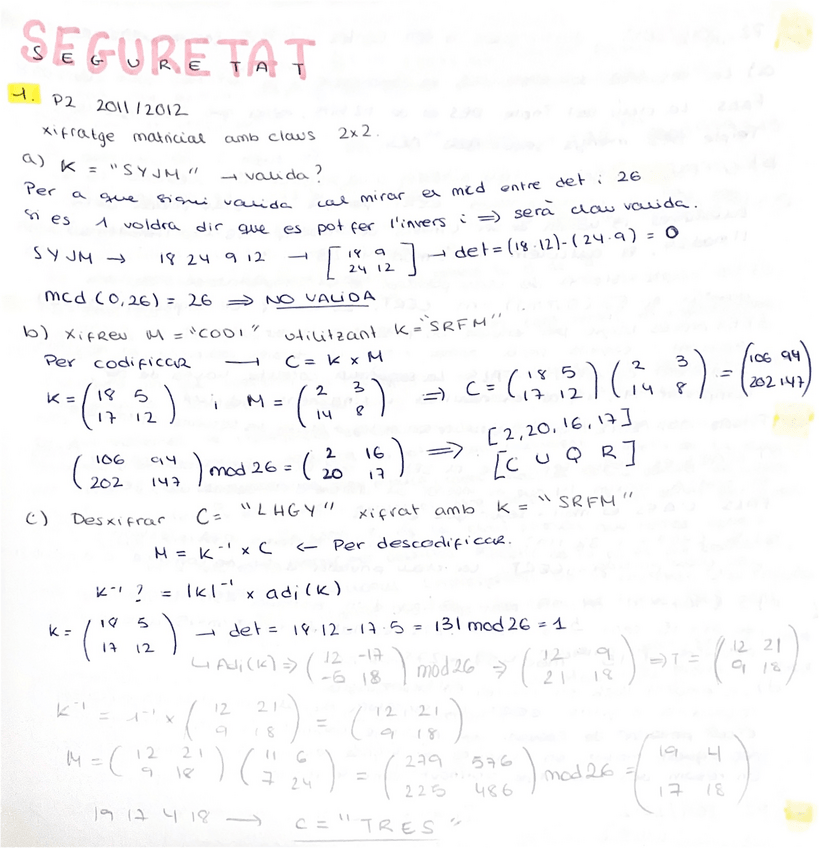 SEGURETAT
S E G U R E T A T
1. P2 2011/2012
xifratge matricial amb claus 2x2.
a) K = "SYJM" → valida?
Per a que sigui valida cal mirar el mcd entre det i 26
si es 1 voldrà dir que es pot fer l'invers i => serà clau valida.
SYJM → 18 24 9 12 → [18 9 / 24 12] → det = (18·12)-(24·9) = 0
mcd (0,26) = 26 => NO VALIDA
b) Xifreu M = "CODI" utilitzant K = "SRFM"
Per codificar → C = K x M
K = (18 5 / 17 12) i M = (2 3 / 14 8) => C = (18 5 / 17 12) (2 3 / 14 8) = (106 94 / 202 147)
(106 94 / 202 147) mod 26 = (2 16 / 20 17) => [2,20,16,17]
[C U Q R]
c) Desxifrar C = "LHGY" xifrat amb K = "SRFM"
M = K⁻¹ x C ← Per descodificar.
K⁻¹ ? = |K|⁻¹ x adj(K)
K = (18 5 / 17 12) → det = 18·12 - 17·5 = 131 mod 26 = 1
↳ Adj(K) => (12 -17 / -5 18) mod 26 => (12 9 / 21 18) => T = (12 21 / 9 18)
K⁻¹ = 1⁻¹ x (12 21 / 9 18) = (12 21 / 9 18)
M = (12 21 / 9 18) (11 6 / 7 24) = (279 576 / 225 486) mod 26 = (19 4 / 17 18)
19 17 4 18 → C = "TRES"